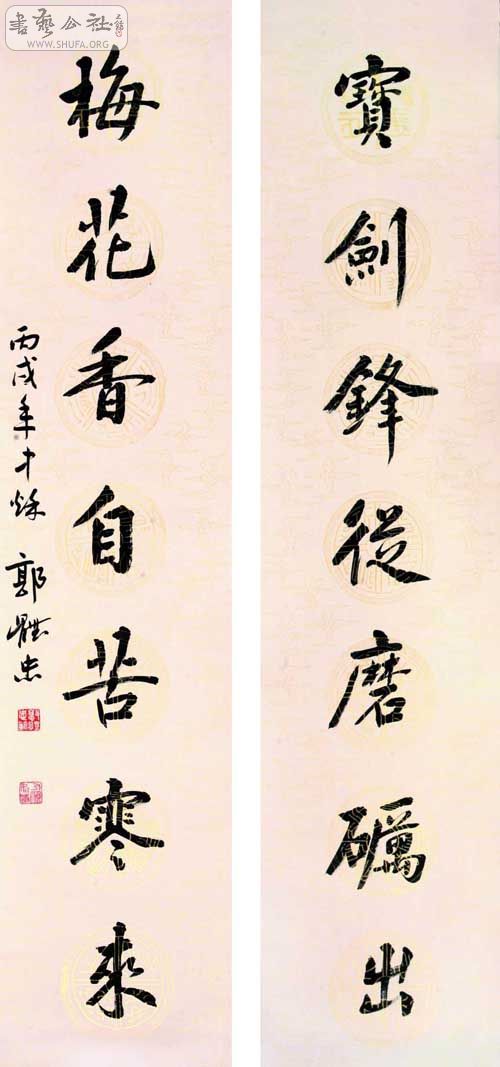 寶劍鋒從磨礪出
梅花香自苦寒來
丙戌年
郭
書藝公社
WWW.SHUFA.ORG